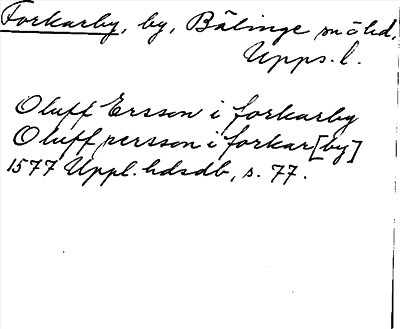 Forkarby, by, Bälinge sn öhd.
Upps. l.
Oluff Ersson i forkarby
Oluff persson i forkar[by]
1577 Uppl. hdsdb, s. 77.